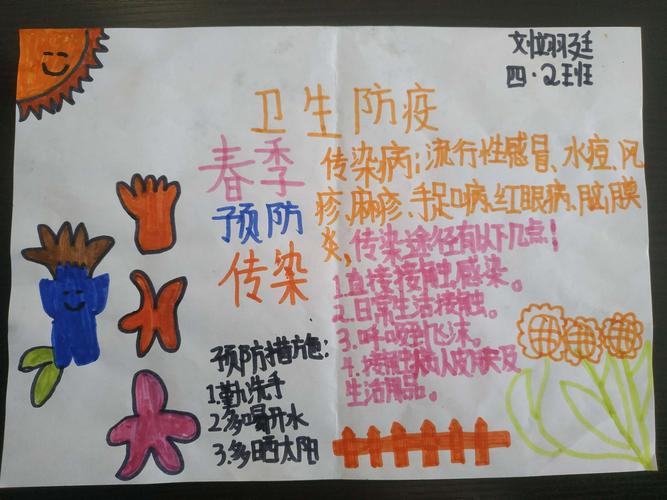 刘翊廷
四·2班
卫生防疫
春季
预防
传染
传染病：流行性感冒、水痘、风
疹、麻疹、手足口病、红眼病、脑膜
炎，
传染途径有以下几点！
1.直接接触感染。
2.日常生活接触。
3.呼吸到飞沫。
4.接触病人皮肤及
生活用品。
预防措施：
1.勤洗手
2.多喝开水
3.多晒太阳